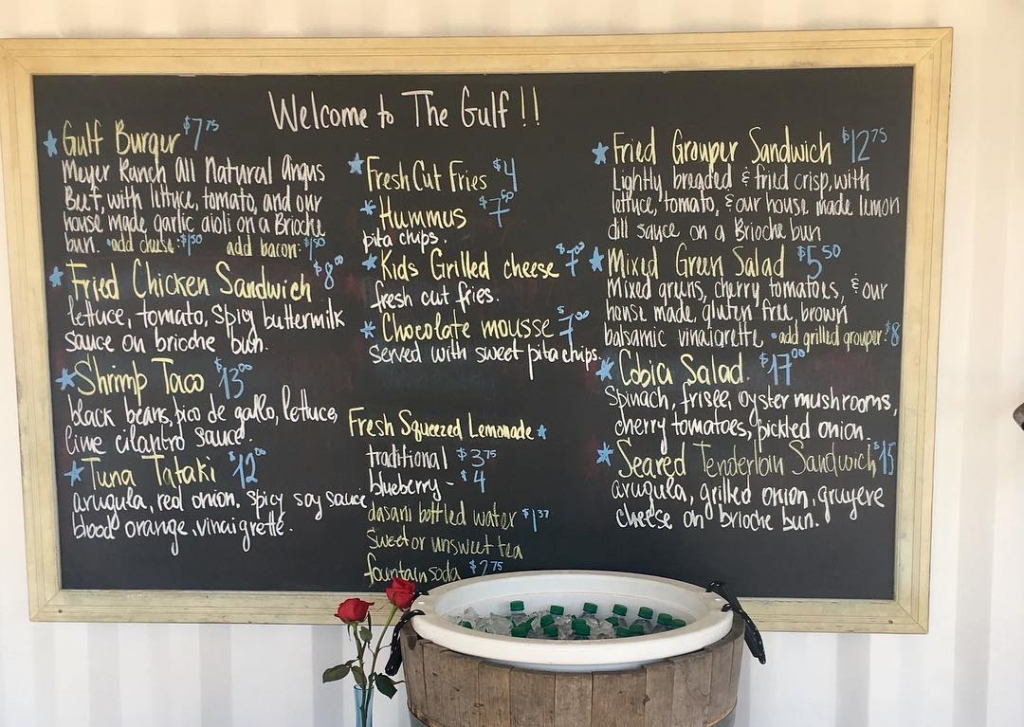 Welcome to The Gulf!!
Gulf Burger $7.75
Meyer Ranch All Natural Angus
Beef, with lettuce, tomato, and our
house made garlic aioli on a Brioche
bun. *add cheese: $1.50 add bacon: $1.50
Fried Chicken Sandwich $8.00
lettuce, tomato, spicy buttermilk
sauce on brioche bun.
Shrimp Taco $13.00
black beans, pico de gallo, lettuce,
lime cilantro sauce.
Tuna Tataki $12.00
arugula, red onion, spicy soy sauce
blood orange vinaigrette.
Fresh Cut Fries $4
Hummus $7.50
pita chips.
Kids Grilled cheese $7.00
fresh cut fries.
Chocolate mousse $7.00
served with sweet pita chips.
Fresh Squeezed Lemonade
traditional $3.75
blueberry - $4
dasani bottled water $1.37
sweet or unsweet tea
fountain soda $2.75
Fried Grouper Sandwich $12.75
Lightly breaded & fried crisp, with
lettuce, tomato, & our house made lemon
dill sauce on a Brioche bun
Mixed Green Salad $5.50
Mixed greens, cherry tomatoes, & our
house made, gluten free, brown
balsamic vinaigrette *add grilled grouper: $8
Cobia Salad $17.00
Spinach, frisee, oyster mushrooms,
cherry tomatoes, pickled onion.
Seared Tenderloin Sandwich $15
arugula, grilled onion, gruyere
cheese on brioche bun.